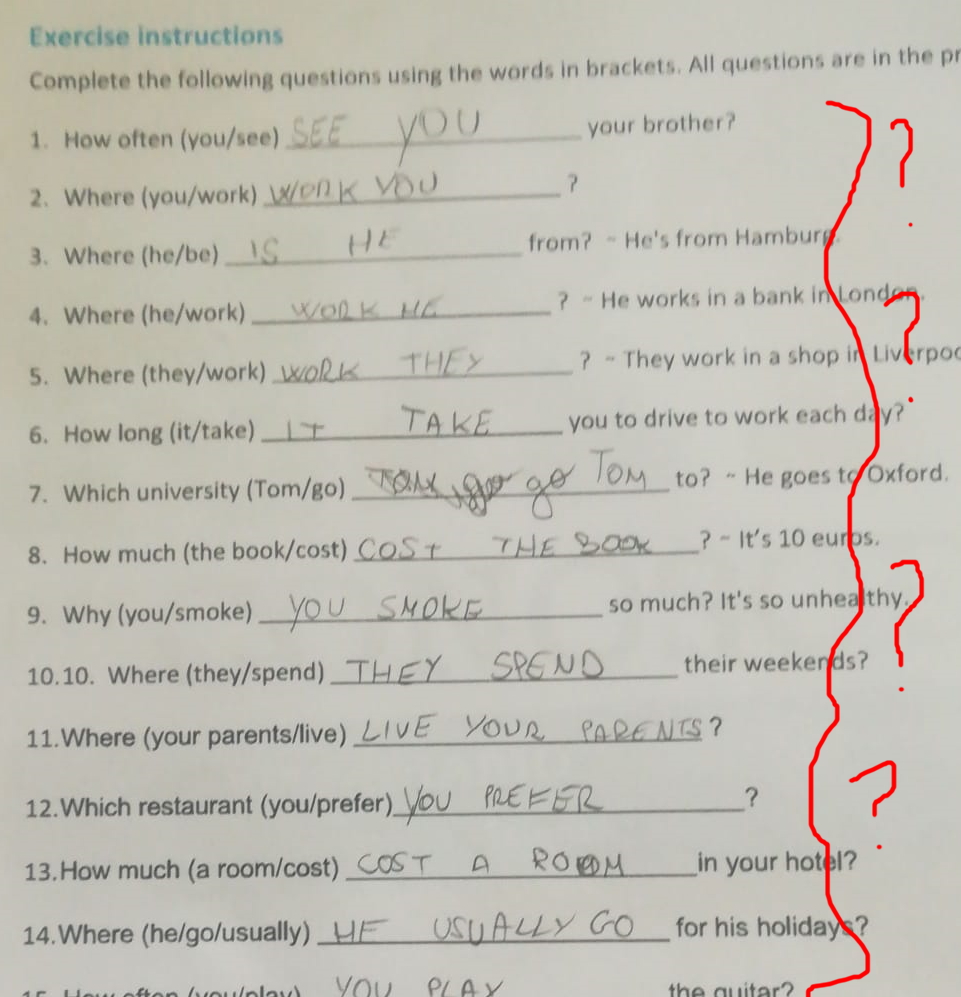 Exercise instructions
Complete the following questions using the words in brackets. All questions are in the pr
1. How often (you/see) SEE YOU your brother?
2. Where (you/work) WORK YOU ?
3. Where (he/be) IS HE from? ~ He's from Hamburg.
4. Where (he/work) WORK HE ? ~ He works in a bank in London.
5. Where (they/work) WORK THEY ? ~ They work in a shop in Liverpoo
6. How long (it/take) IT TAKE you to drive to work each day?
7. Which university (Tom/go) go TOM to? ~ He goes to Oxford.
8. How much (the book/cost) COST THE BOOK ? ~ It's 10 euros.
9. Why (you/smoke) YOU SMOKE so much? It's so unhealthy.
10.10. Where (they/spend) THEY SPEND their weekends?
11.Where (your parents/live) LIVE YOUR PARENTS ?
12.Which restaurant (you/prefer) YOU PREFER ?
13.How much (a room/cost) COST A ROOM in your hotel?
14.Where (he/go/usually) HE USUALLY GO for his holidays?
15. How often (you/play) YOU PLAY the guitar?